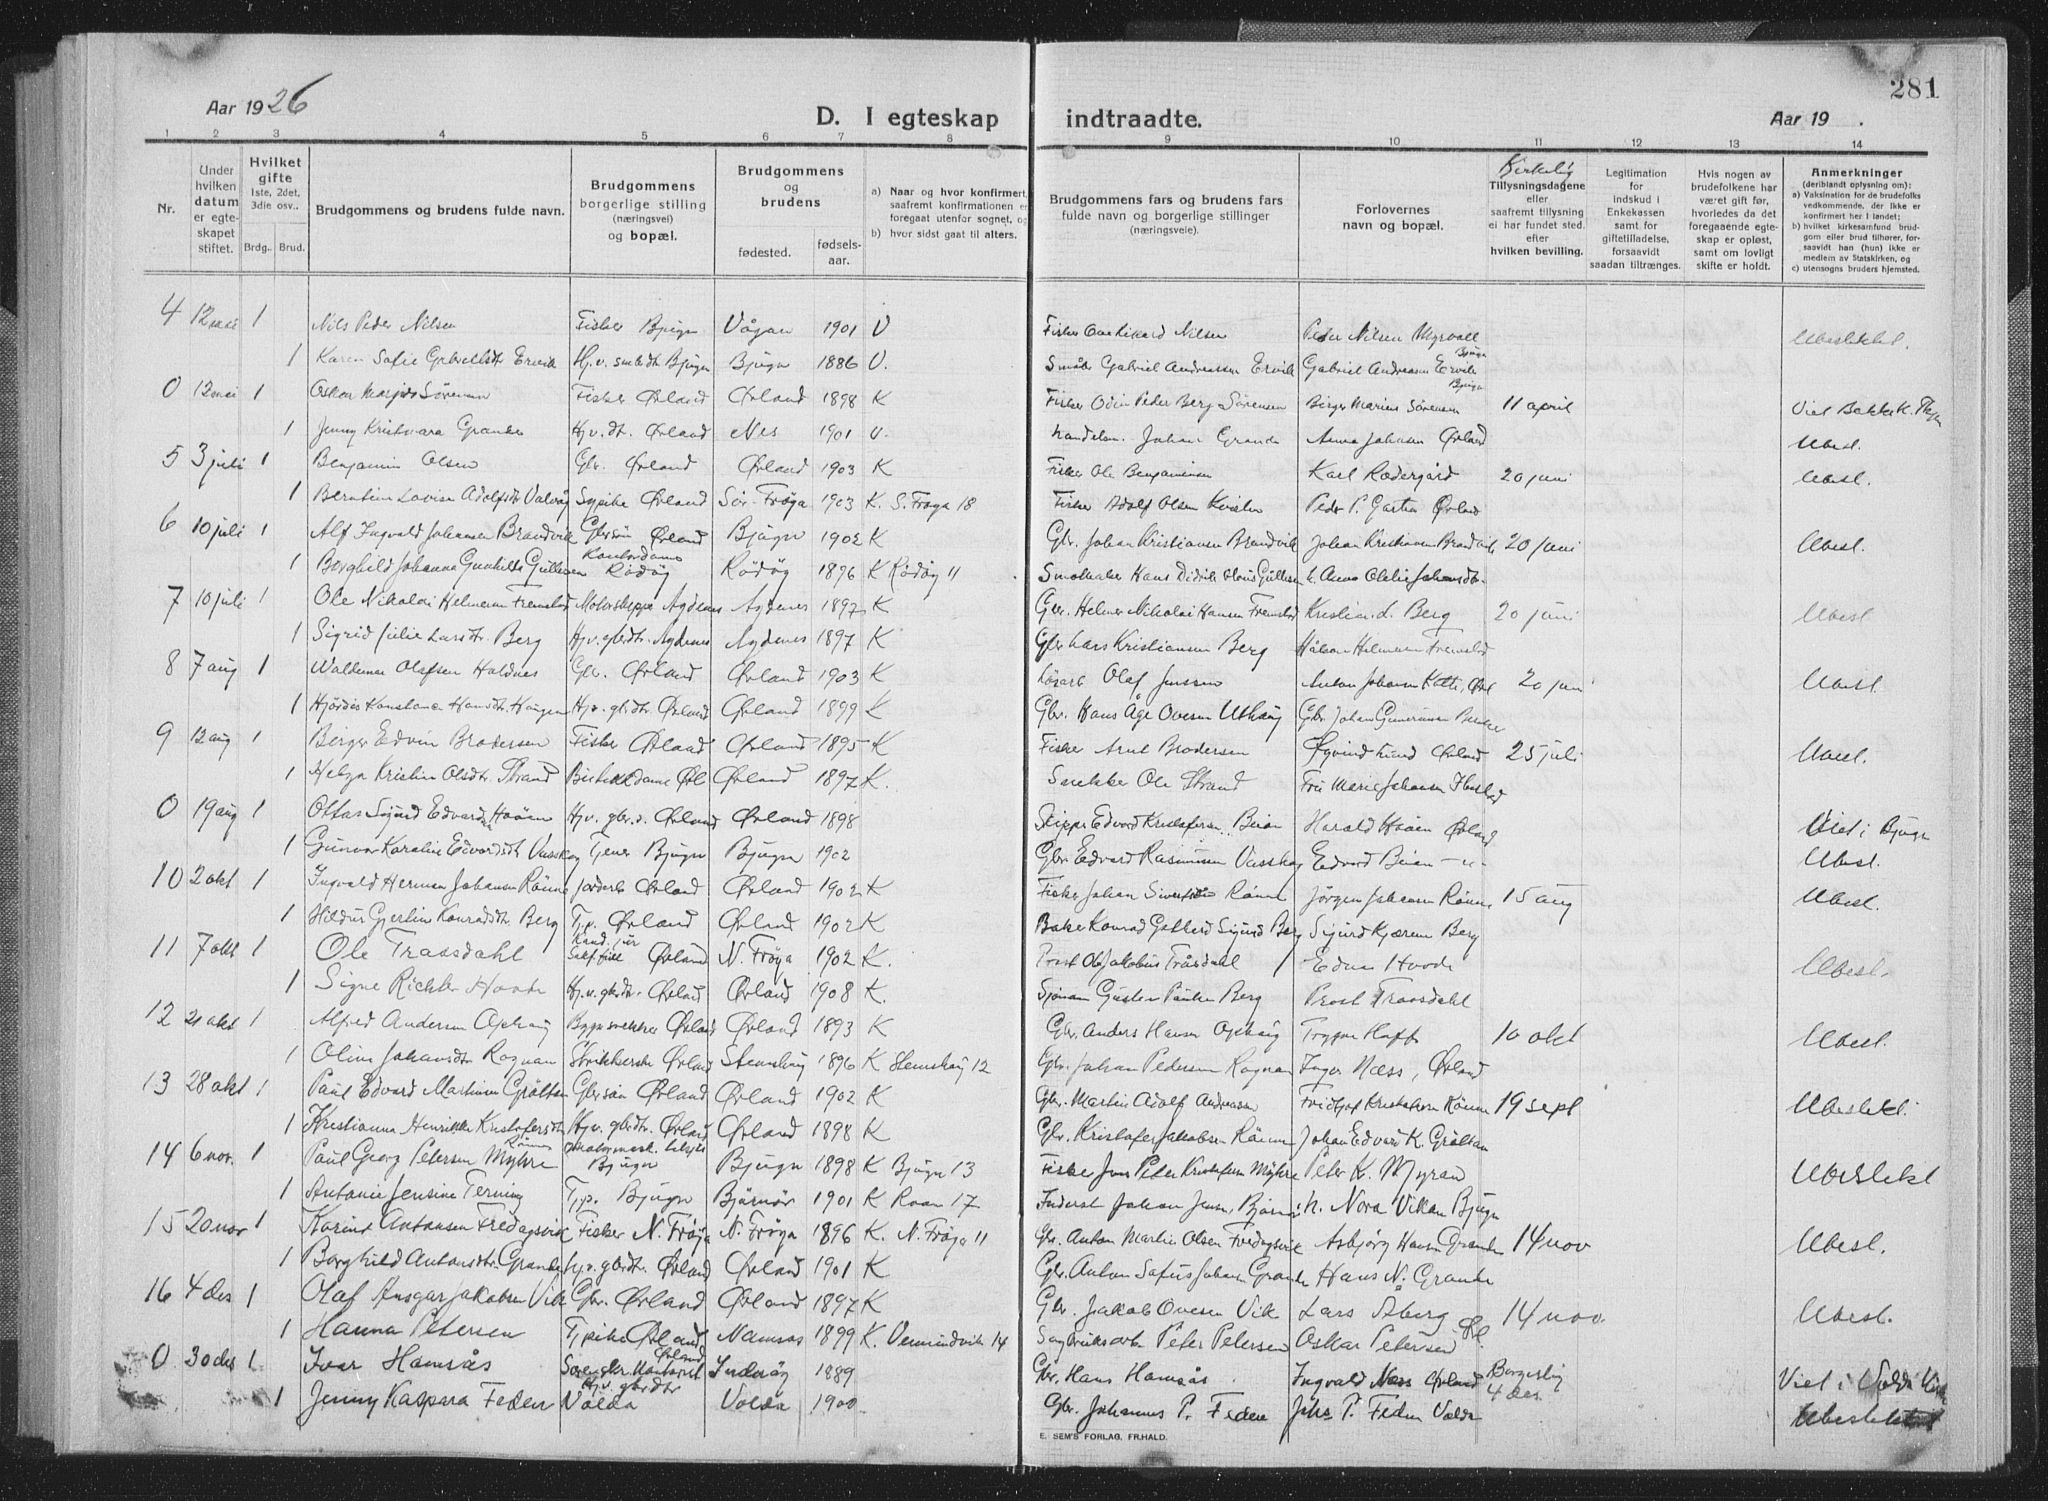 281
Aar 1926
D. I egteskap indtraadte.
Aar 19 .
1 2 3 4 5 6 7 8 9 10 11 12 13 14
Nr.
Under hvilken datum er egteskapet stiftet.
Hvilket gifte 1ste, 2det, 3die osv..
Brdg.. Brud.
Brudgommens og brudens fulde navn.
Brudgommens borgerlige stilling (næringsvei) og bopæl.
Brudgommens og brudens
fødested. fødselsaar.
a) Naar og hvor konfirmert, saafremt konfirmationen er foregaat utenfor sognet, og
b) hvor sidst gaat til alters.
Brudgommens fars og brudens fars fulde navn og borgerlige stillinger (næringsveie).
Forlovernes navn og bopæl.
Kirkelig
Tillysningsdagene eller saafremt tillysning ei har fundet sted. efter hvilken bevilling.
Legitimation for indskud i Enkekassen samt for giftetilladelse, forsaavidt saadan tiltrænges.
Hvis nogen av brudefolkene har været gift før, hvorledes da det foregaaende egteskap er opløst, samt om lovligt skifte er holdt.
Anmerkninger (deriblandt oplysning om):
a) Vaksination for de brudefolks vedkommende, der ikke er konfirmert her i landet;
b) hvilket kirkesamfund brudgom eller brud tilhører, forsaavidt han (hun) ikke er medlem av Statskirken, og
c) utensogns bruders hjemsted.
4 12 mai 1 Nils Peder Nilsen Fisker Bjugn Vågan 1901 V Fisker Ove Rikard Nilsen Peder Nilsen Myrvoll Bjugn Ubeslektet.
1 Karen Sofie Gabrielsdt Ervik Hj.v. småbdt Bjugn Bjugn 1886 V. Småbr Gabriel Andreassen Ervik Gabriel Andreasen Ervik Bjugn
0 12 mai 1 Oskar Sörensen Fisker Ørland Ørland 1898 K Fisker Odin Peder Berg Sörensen Birger Marius Sörensen 11 april Viet Bakke K.
1 Jenny Grande Hj.v.dt. Ørland Nes 1901 V. Handelsm. Johan Grande Anna Johansen Ørland Ubesl.
5 3 juli 1 Benjamin Olsen Gbr. Ørland Ørland 1903 K Fisker Ole Benjaminsen Karl Rødergård 20 juni Ubesl.
1 Berntine Lovise Adolfsdt Valvåg Sypike Ørland Sör-Fröya 1903 K. S. Fröya 18 Fisker Adolf Olsen Peder P. Garten Ørland
6 10 juli 1 Alf Ingvald Johansen Brandvik Gbrsön Ørland Bjugn 1902 K Gbr. Johan Kristiansen Brandvik Johan Kristiansen Brandvik 20 juni Ubesl.
1 Borghild Johanna Gunhilda Gullesen Kontordame Rödöy Rödöy 1896 K Rödöy 11 Smølhaker Hans Didrik Gullesen
7 10 juli 1 Ole Nikolai Helmersen Fremstad Motorskipper Agdenes Agdenes 1897 K Gbr. Helmer Nikolai Hansen Fremstad Kristian L. Berg 20 juni Ubesl
1 Sigrid Julie Larsdtr. Berg Hj.v. gbrdtr. Agdenes Agdenes 1897 K Gbr Lars Kristiansen Berg Håkon Helmersen Fremstad
8 7 aug 1 Waldemar Olafsen Haldnes Gbr. Ørland Ørland 1903 K Løsarb Olaf Jenssen Anton Johansen 20 juni Ubesl.
1 Hjördis Konstance Hansdt. Haugen Hj.v. gbrdtr. Ørland Ørland 1899 K Gbr. Hans Åge Ovesen Uthaug Gbr Johan
9 12 aug 1 Berger Edvin Brodersen Fisker Ørland Ørland 1895 K Fisker Arnt Brodersen Øyvind Lund Ørland 25 juli Ubesl.
1 Helga Kristine Olsdtr. Strand Ørl Ørland 1897 K. Snekker Ole Strand Fru Marie Johansen
0 19 aug 1 Ottar Sigurd Edvardsen Hoöen Hj.v. gbr.s. Ørland Ørland 1898 Skipper Edvard Kristofersen Beian Harald Hoöen Ørland Viet i Bjugn
1 Gunvor Karoline Edvardsdt Vasskog Tjener Bjugn Bjugn 1902 Gbr Edvard Rasmussen Vasskog Edvard Beian —"— Ubesl.
10 2 okt 1 Ingvald Herman Johansen Rönne Jordarb Ørland Ørland 1902 K Fisker Johan Sivertsen Rönne Jörgen Johansen Rönne 15 aug Ubesl.
1 Hildur Gjertine Konradsdt. Berg Tj.p. Ørland Ørland 1902 K Baker Konrad Gotlerd Sigurd Berg Sigurd Kjæren Berg
11 7 okt 1 Ole Traasdahl Kand. jur Ørland N. Fröya 1902 K. Prost Ole Jakobus Tråsdahl Edna Hoode Ubesl.
1 Signe Richter Hj.v. gbrdtr. Ørland Ørland 1908 K. Sjömann Gustav Berg Prost Traasdahl
12 21 okt 1 Alfred Andersen Ophaug Byggsnekker Ørland Ørland 1893 K Gbr. Anders Hansen Ophaug Trygve Hoff 10 okt Ubesl.
1 Oline Johansdtr Rognan Strikkerske Ørland Stemshaug 1896 K Stemshaug 12 Gbr. Johan Pedersen Rognan Inger Næss, Ørland
13 28 okt 1 Paul Edvard Martinsen Gröltan Gbrsön Ørland Ørland 1902 K Gbr. Martin Adolf Andreasen Fridtjof Kristofersen Rönne 19 sept Ubeslekt.
1 Kristianna Henrikke Kristofersdtr Rönne Hj.v. gbrdtr. Ørland Ørland 1898 K Gbr. Kristofer Jakobsen Rönne Johan Edvard K. Gröltan
14 6 nov. 1 Paul Georg Petersen Myhre Bjugn Bjugn 1898 K Bjugn 13 Fisker Jens Peter Kristofersen Myhre Peter K. Myran Ubeslekt
1 Antonie Jensine Terning Tj.p. Bjugn Bjørnör 1901 K Roan 17 Inderst Johan Jensen, Bjørnör h. Nora Vikan Bjugn
15 20 nov 1 Karint Antonsen Fredagsvik Fisker N. Fröya N. Fröya 1896 K. N. Fröya 11 Gbr. Anton Martin Olsen Fredagsvik Asbjörg Hansen Grande 14 nov Ubesl.
1 Borghild Antonsdtr. Grande Hj.v. gbrdtr. Ørland Ørland 1901 K Gbr. Anton Sefus Johansen Grande Hans N. Grande
16 4 des 1 Olaf Ansgar Jakobsen Vik Gbr. Ørland Ørland 1897 K Gbr. Jakob Ovesen Vik Lars Åberg Ørl. 14 nov. Ubesl.
1 Hanna Petersen Tjpike Ørland Namsos 1899 K. Vemundvik 14 Sagbruksarb Peter Petersen Oskar Petersen
0 30 des 1 Ivar Hamsås Ørland Inderöy 1889 Gbr. Hans Hamsås Ingvald Næss Ørland Borgerlig 4 des Viet i Volda Kirke
1 Jenny Kaspara Feden Hj.v. gbrdtr Volda Volda 1900 Gbr. Johannes P. Fedne Johs P. Feden Volda Ubeslektet
E. SEM'S FORLAG, FR.HALD.